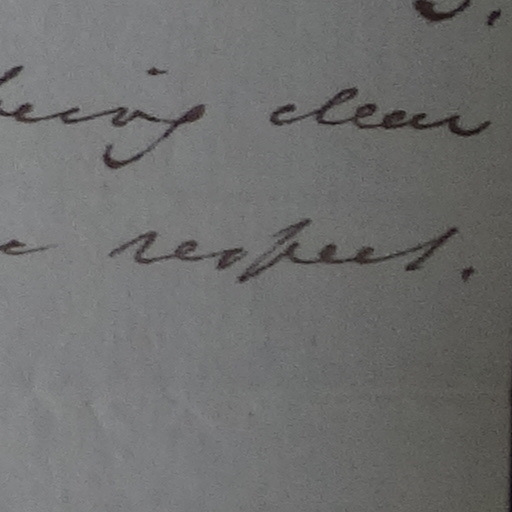 being clear
respect.